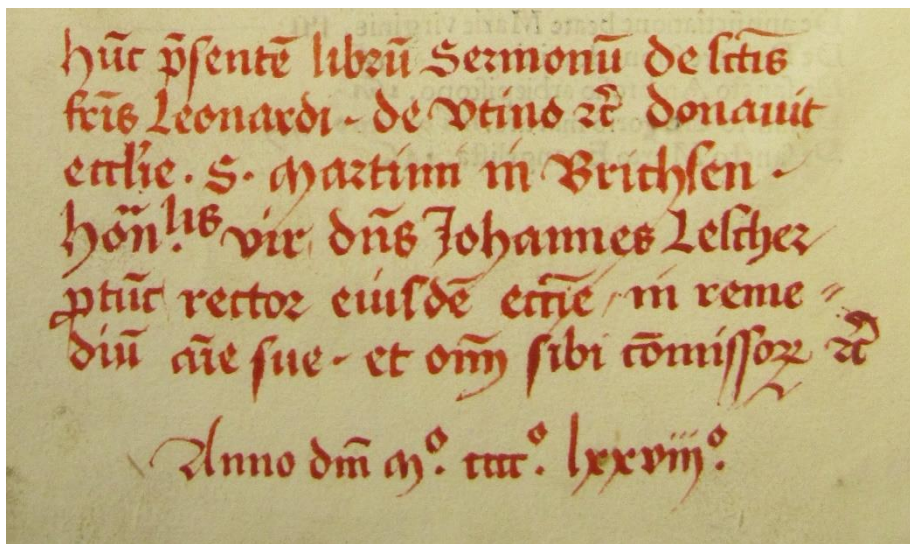 Hūc p̄sentē librū Sermonū de sctīs
fr̄is Leonardi de Vtino ꝛc̄ donauit
eccl̄ie . S . Martini in Brichsen .
Hōn.lis vir dn̄s Johannes Lescher
ꝓtūc rector eiusdē eccīe in reme=
diū aīe sue et om̄ sibi cōmissoꝝ ꝛc̄
Anno dm̄ Mº. cccc º. lxxviiiº.